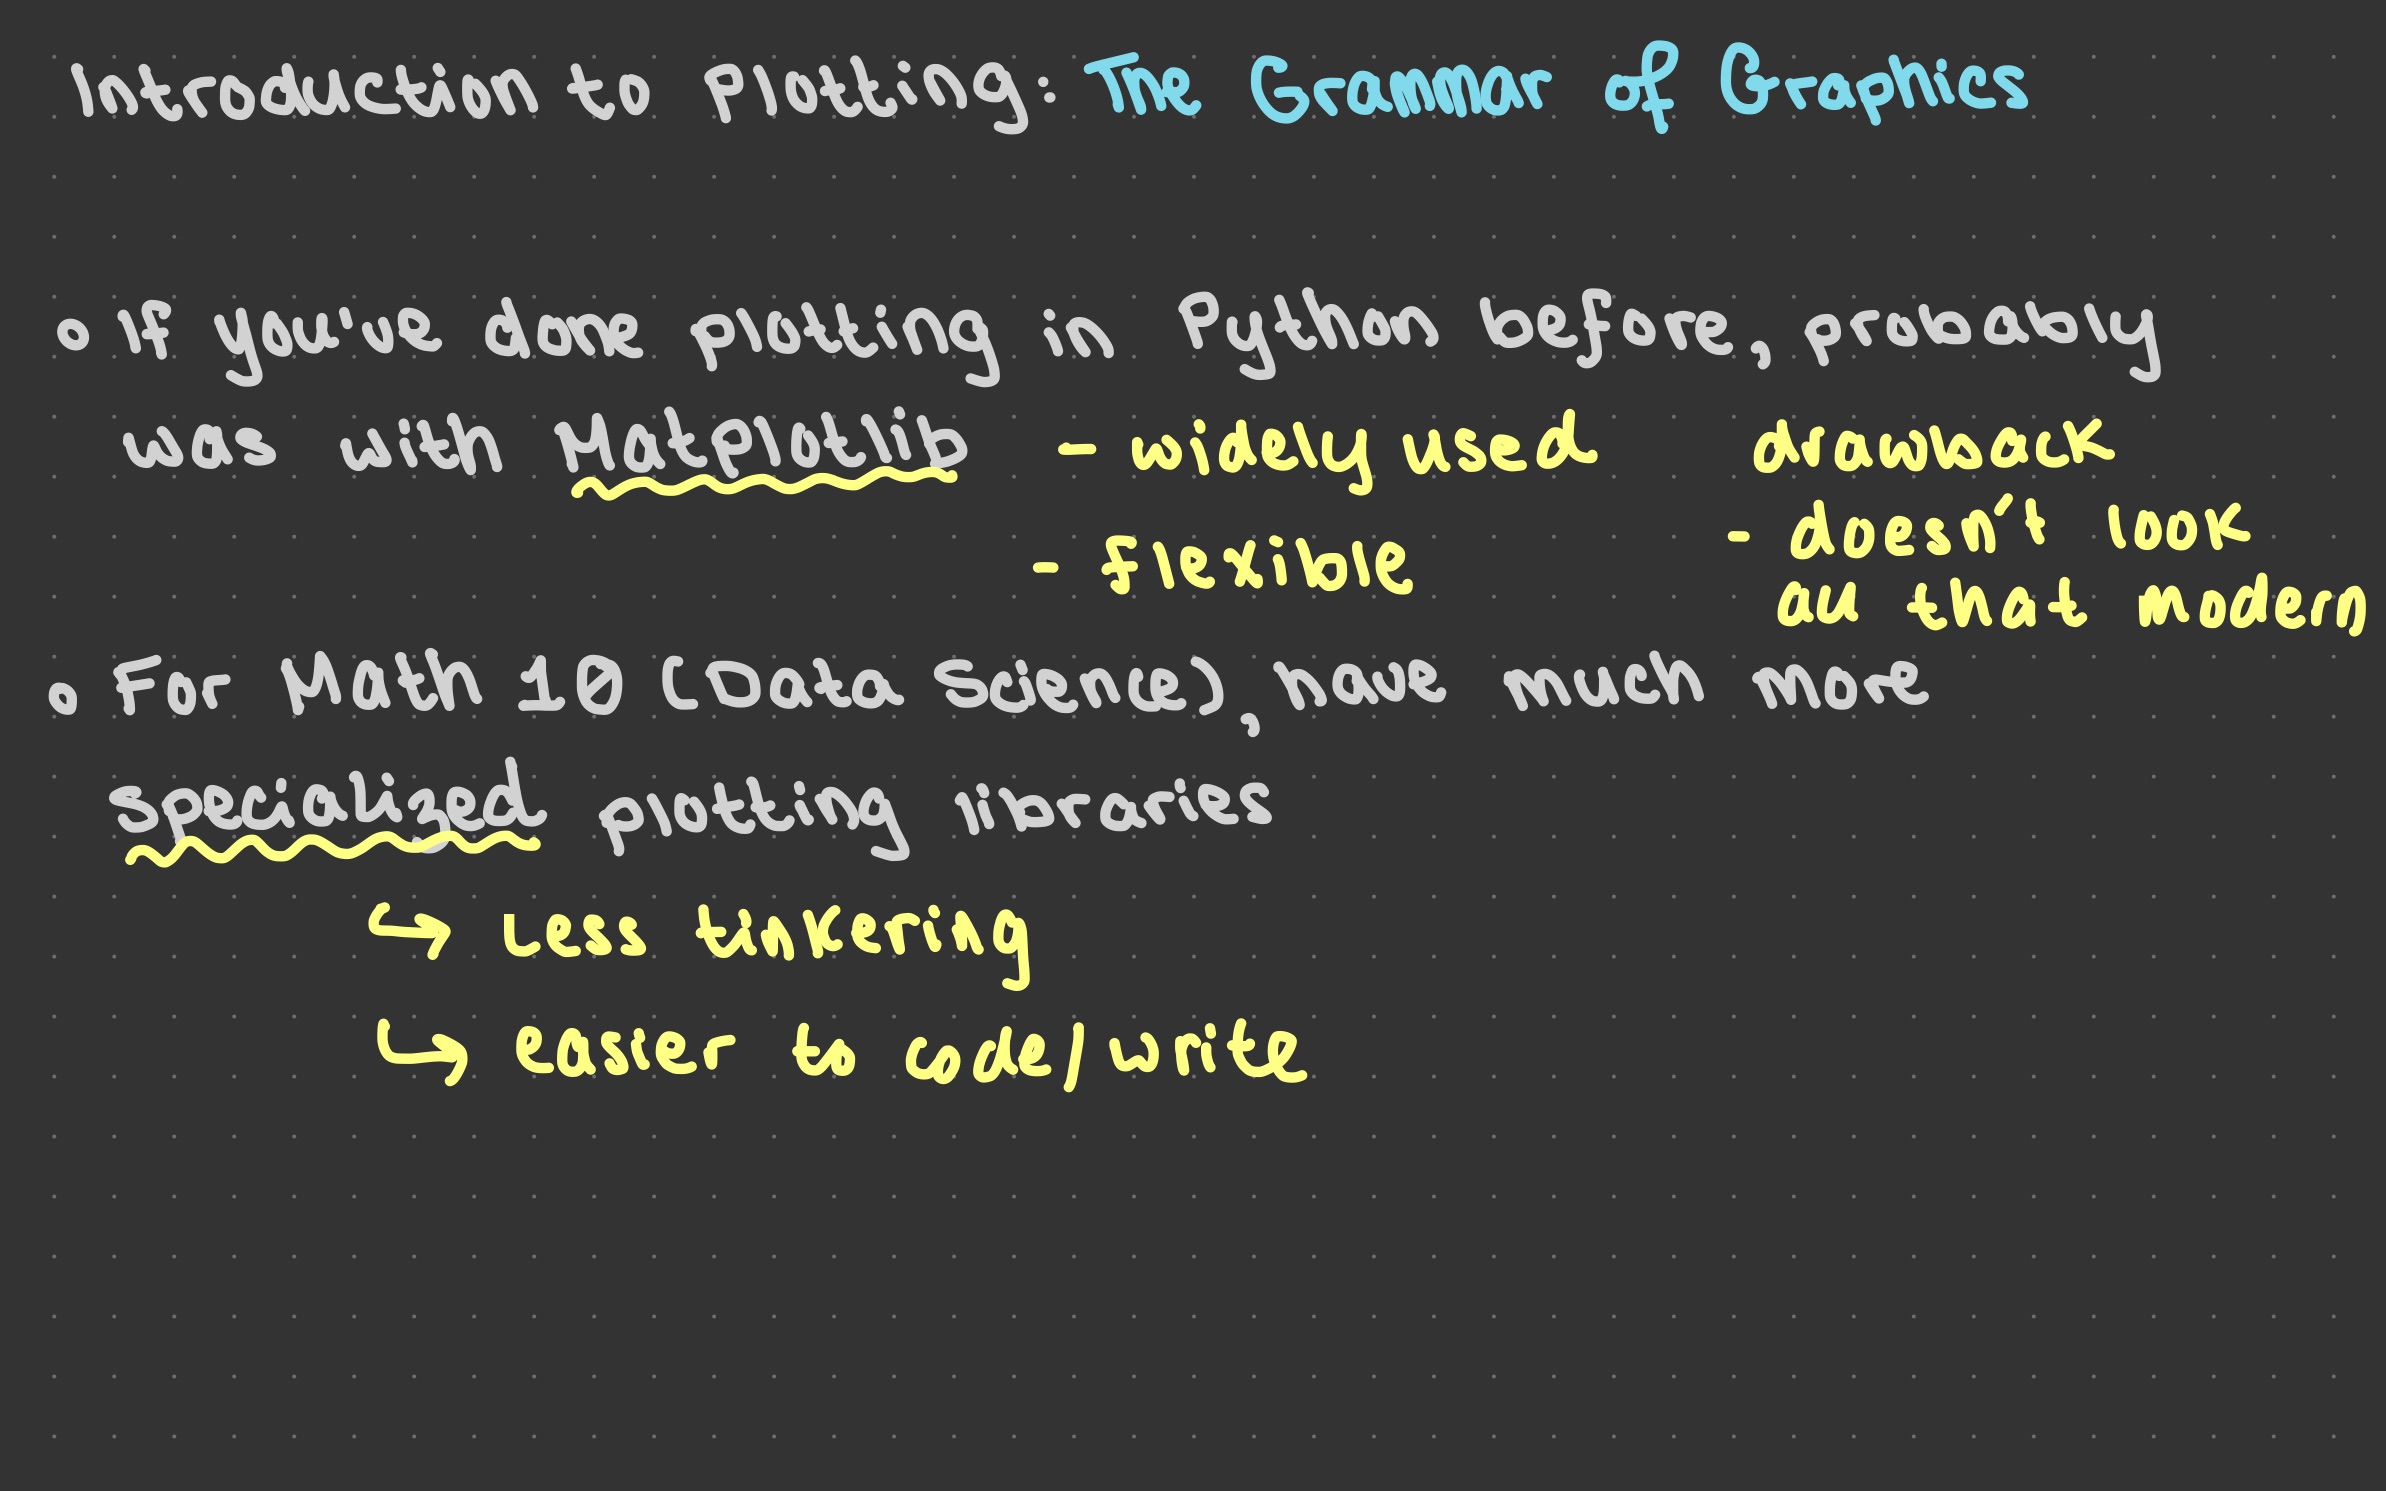 Introduction to Plotting: The Grammar of Graphics
◦ If you've done plotting in Python before, probably
was with Matplotlib - widely used drawback
- flexible - doesn't look
all that modern
◦ For Math 10 (Data Science), have much more
specialized plotting libraries
↪ Less tinkering
↪ easier to code/write